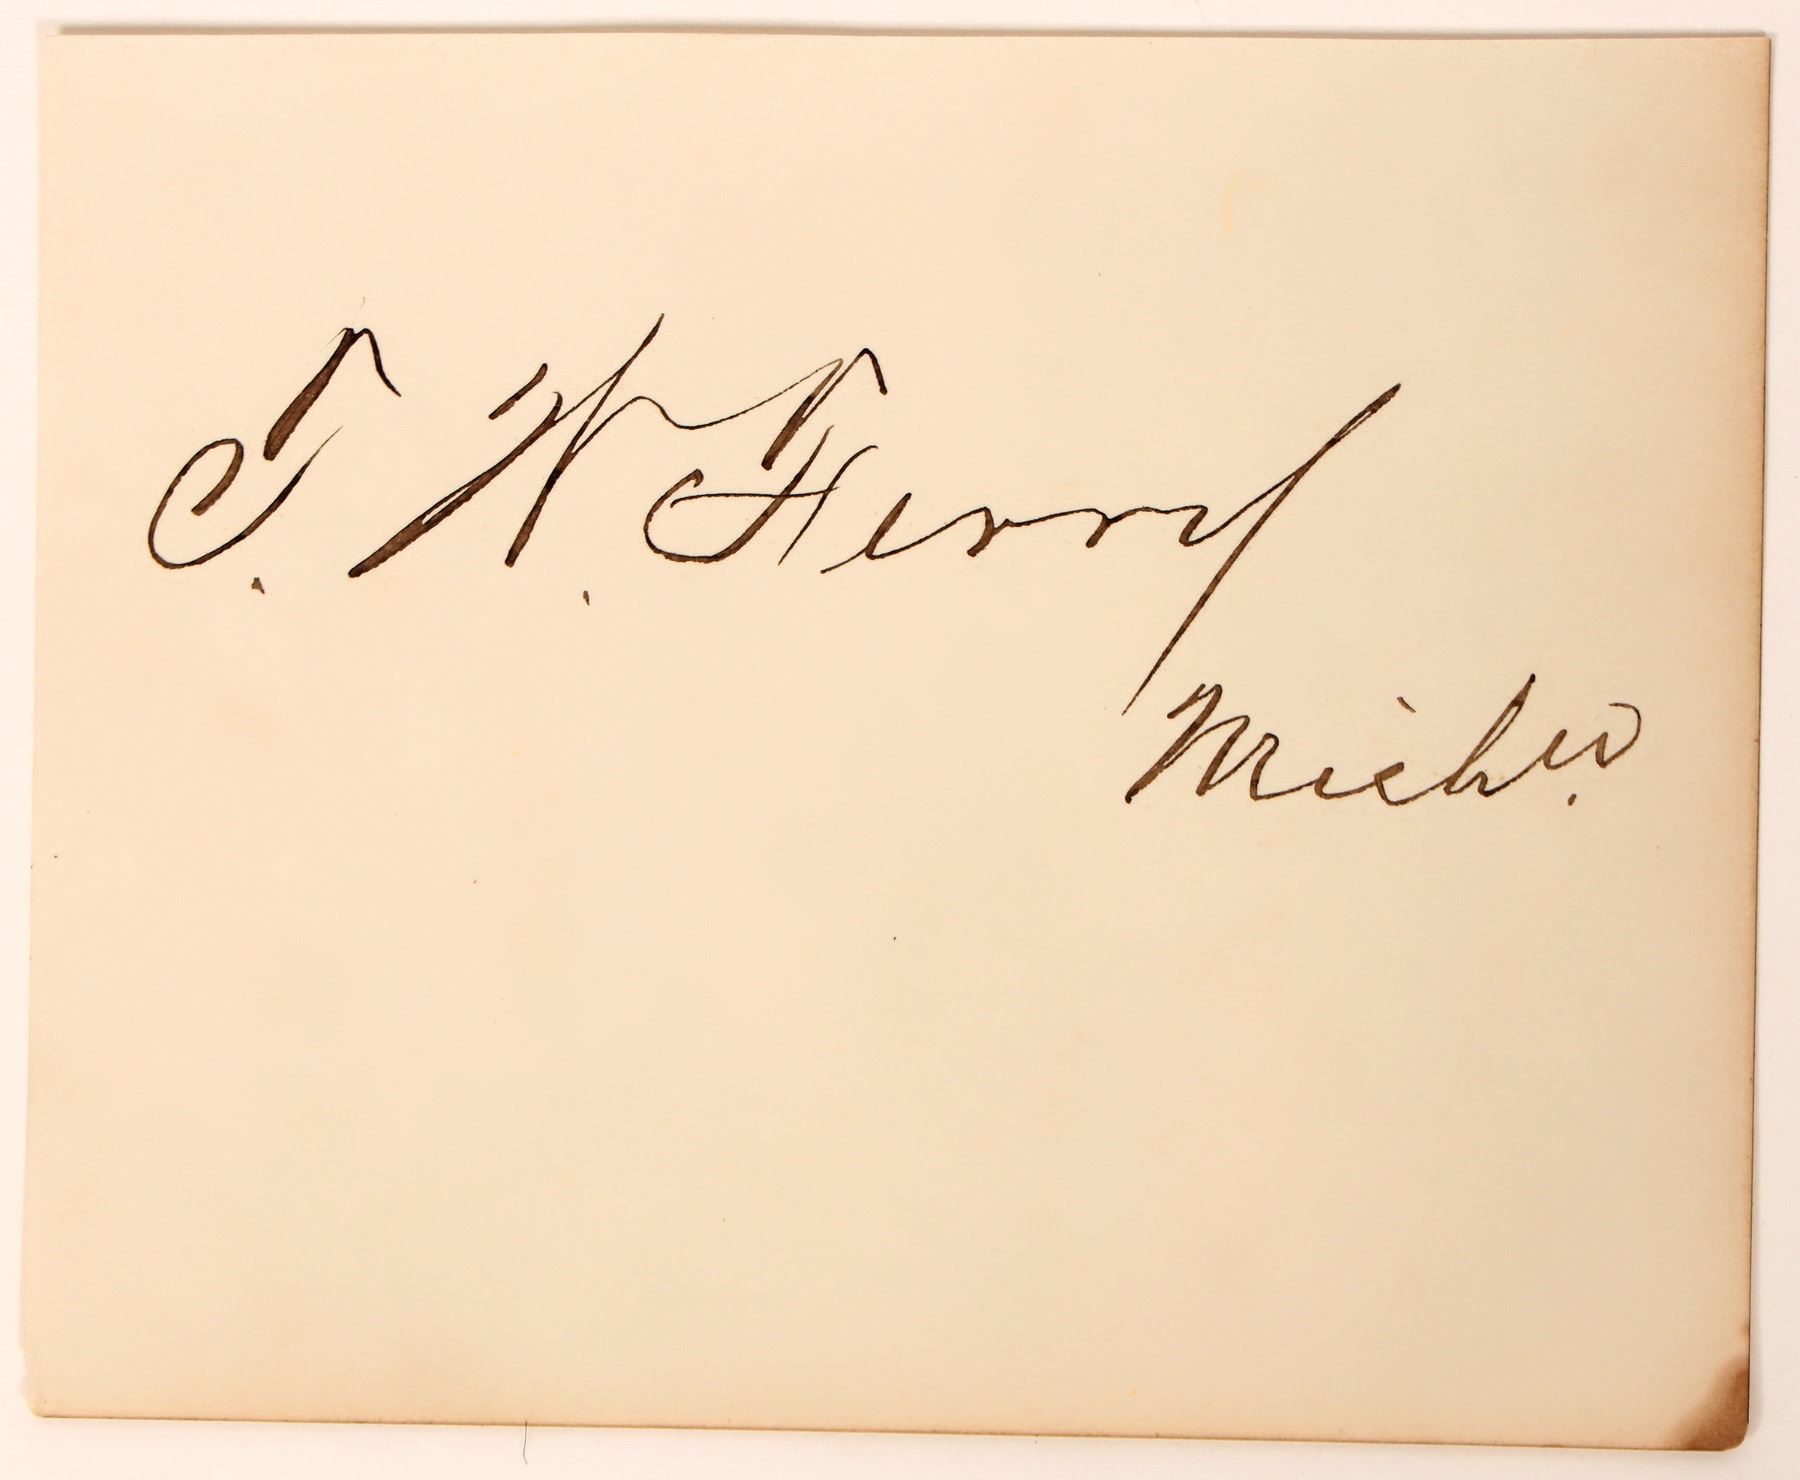 T. W. Ferry
Mich.